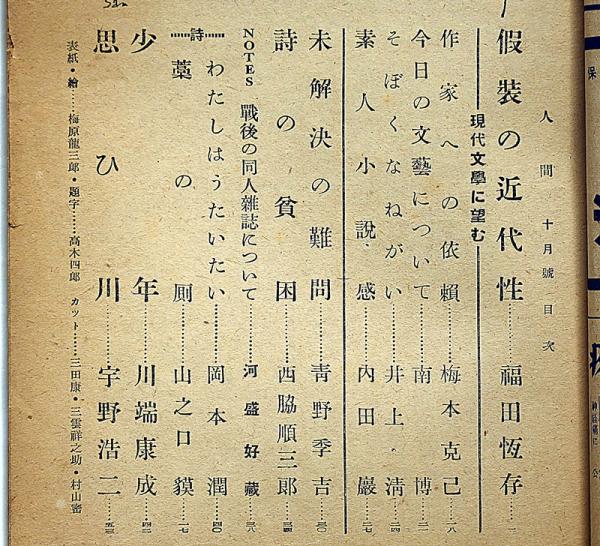 人間 十月號目次
假裝の近代性………福田恆存…一
現代文學に望む
作家への依賴………梅本克己…一八
今日の文藝について………南博…二一
そぼくなねがい………井上淸…二四
素人小說感………內田巖…二七
未解決の難問………靑野季吉…三〇
詩の貧困………西脇順三郎…三四
NOTES 戰後の同人雜誌について………河盛好藏…三八
詩
わたしはうたいたい………岡本潤…四〇
藁の厠………山之口貘…一七
少年………川端康成…四二
思ひ川………宇野浩二…五三
表紙・繪……梅原龍三郎・題字……高木四郎 カット……三田康・三雲祥之助・村山密